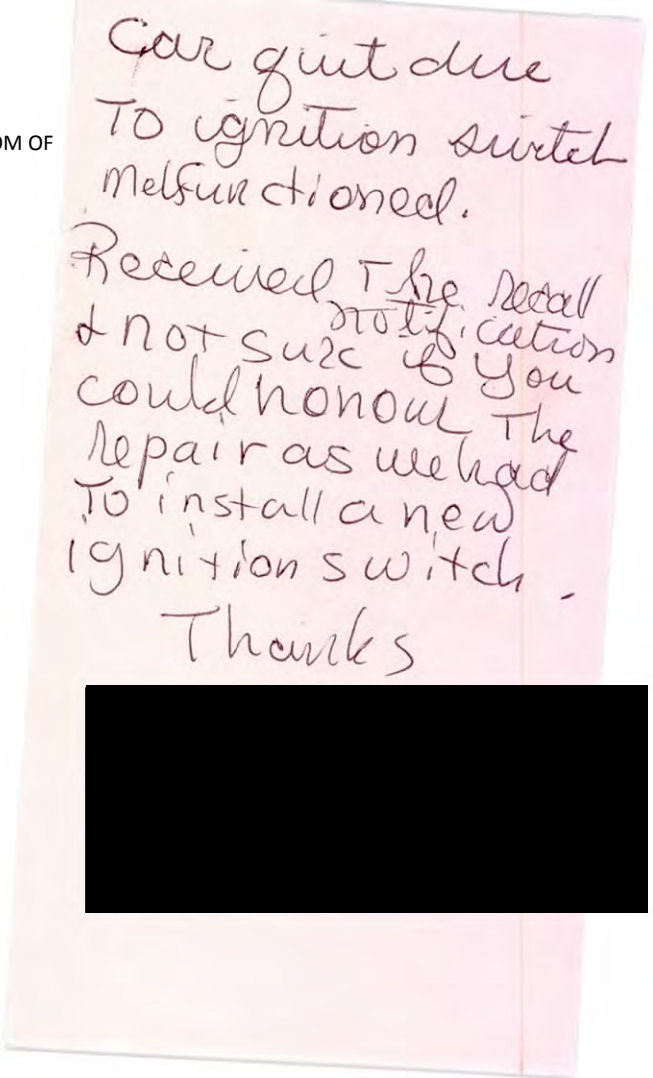 OM OF
Car quit due
To ignition switch
Melfunctioned.
Received The recall
notification
& not sure if you
could honour The
repair as we had
To install a new
ignition switch.
Thanks